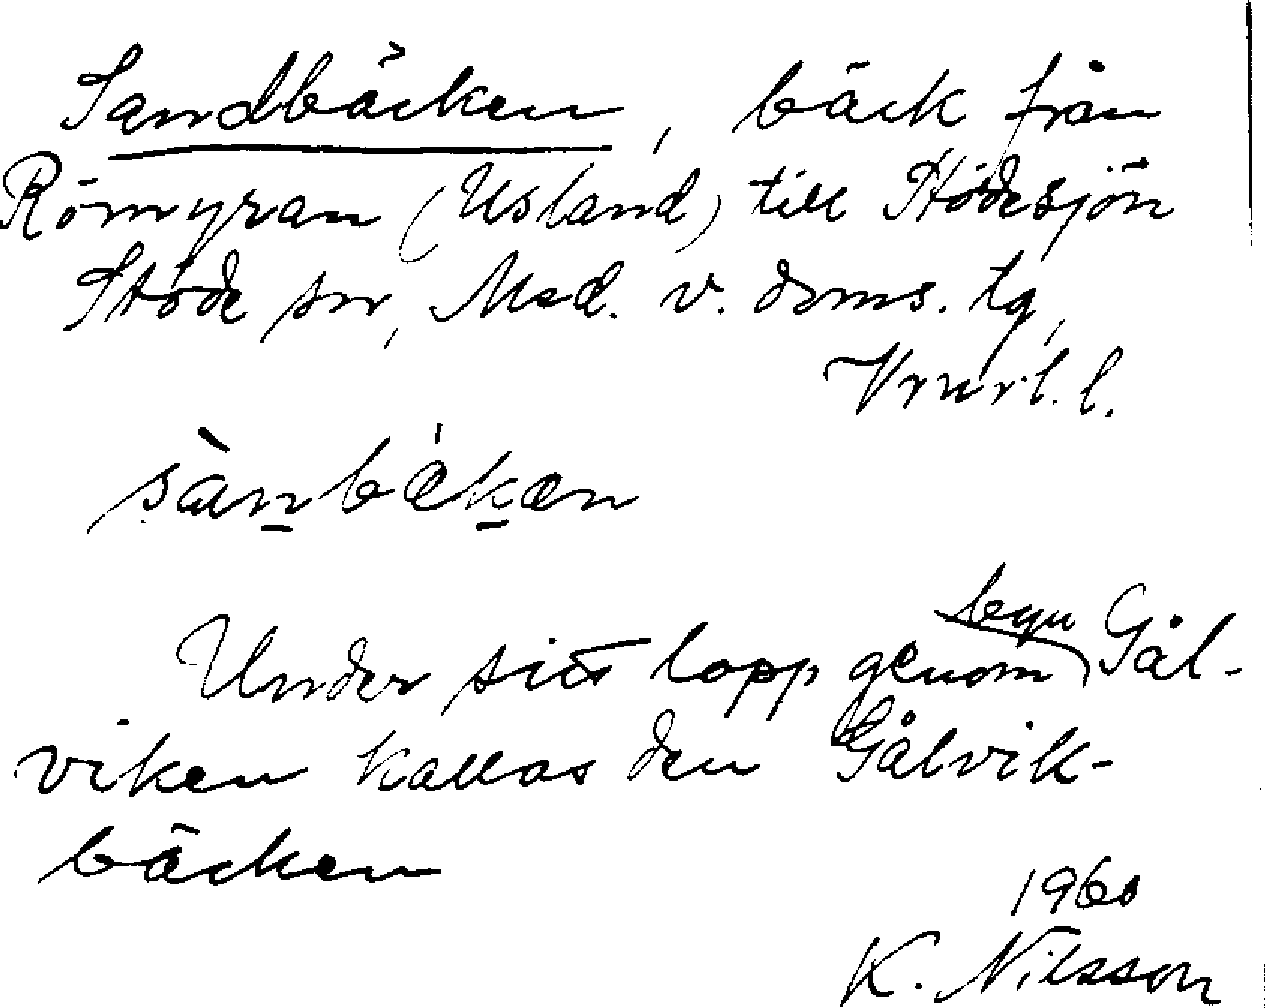 Sandbäcken, bäck från
Römyran (Usland) till Stödesjön
Stöde sn, Med. v. doms. tg,
Vnrl. l.
sànbækæn
Under sitt lopp genom byn Gål-
viken kallas den Gålvik-
bäcken
1960
K. Nilsson